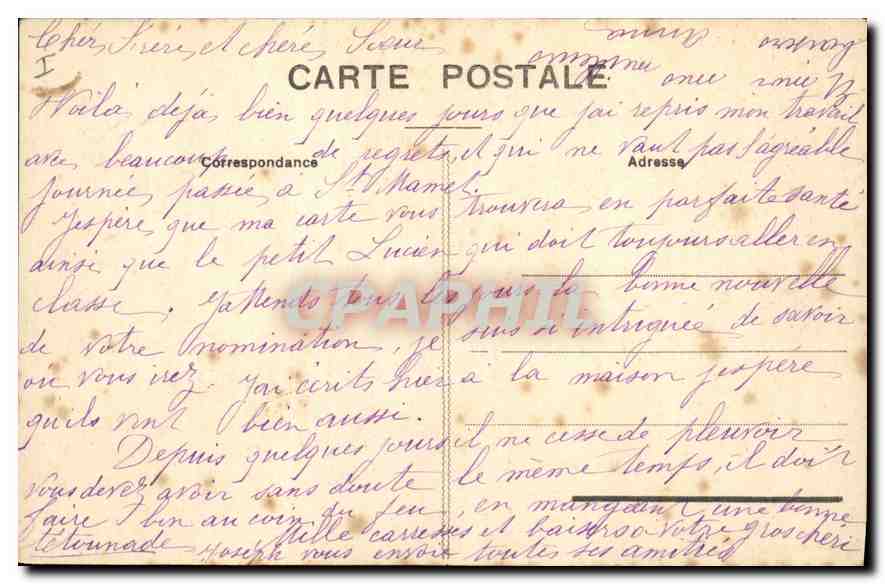 Cher Frère et chère Soeur
I
CARTE POSTALE
Voilà déjà bien quelques jours que j'ai repris mon travail
Correspondance
Adresse
avec beaucoup de regrets, et qui ne vaut pas l'agréable
journée passée à St Mamet.
J'espère que ma carte vous trouvera en parfaite santé
ainsi que le petit Lucien qui doit toujours aller en
classe. J'attends tous les jours la bonne nouvelle
CPAPHIL
de votre nomination, je suis si intriguée de savoir
où vous irez. J'ai écrits hier à la maison j'espère
qu'ils vont bien aussi.
Depuis quelques jours il ne cesse de pleuvoir
vous devez avoir sans doute le même temps, il doit
faire bon au coin du feu, en mangeant une bonne
tétounade. Mille caresses et baisers à votre gros chéri
Joseph vous envoie toutes ses amitiés